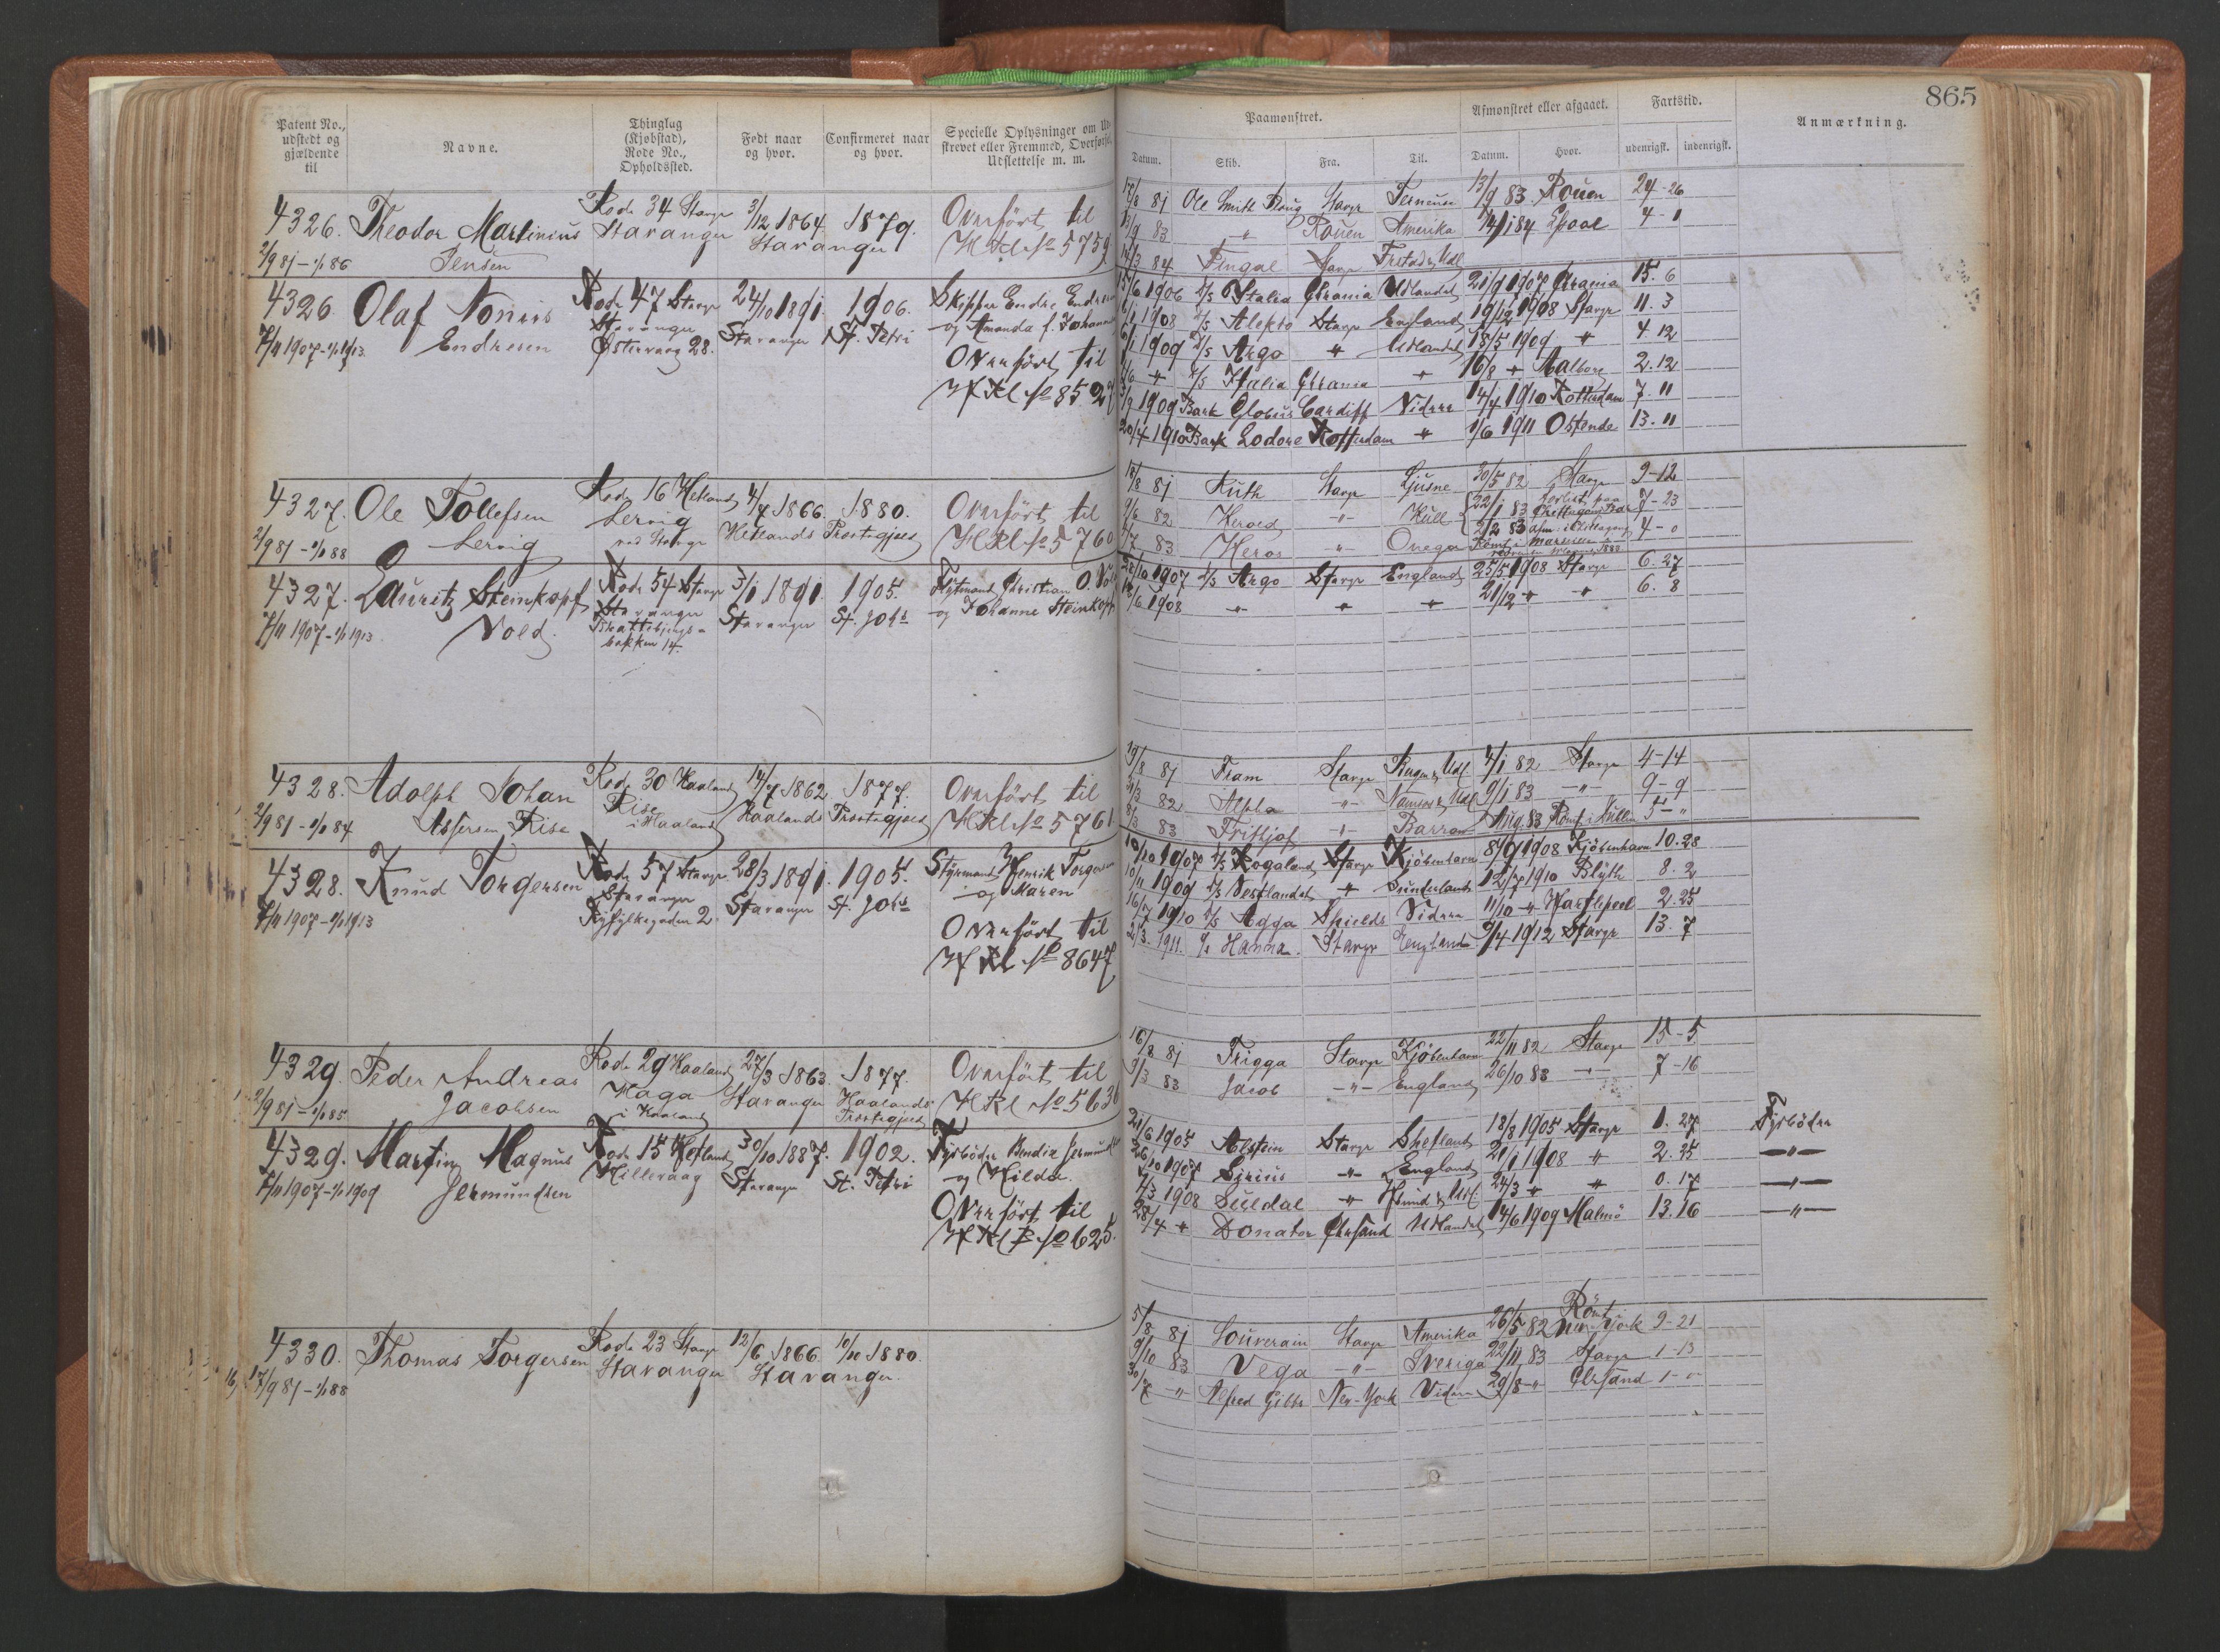 865
Patent No., udstedt og gjældende til
Navne.
Thinglag (Kjøbstad), Rode No., Opholdssted.
Født naar og hvor.
Confirmeret naar og hvor.
Specielle Oplysninger om
Udslettelse m. m.
Paamønstret.
Datum. Skib. Fra. Til.
Afmønstret eller afgaaet.
Datum. Hvor.
Fartstid.
udenrigsk. indenrigsk.
Anmærkning.
4326. Theodor Martinius Rode 34 Stavgr 3/12 1864 1879. Overført til
2/9 81 – 1/1 86 Jensen Stavanger Stavanger H Rl No 5759
17/8 81 Ole Smith Ploug Stavgr Terneuse 13/9 83 Rouen 24-26
13/9 83 " Rouen Amerika 14/1 84 4-1
14/3 84 Fingal Stavgr
4326 Olaf Nonus Rode 47 Stavgr 24/10 1891. 1906. Skipper Endre
7/11 1907 – 1/1 1913. Endresen Stavanger Østervaag 28. Stavanger St. Petri og Amanda f.
Overført til
H Rl No 852
15/6 1906 D/S Italia Chrania Udlandet 21/9 1907 Chrania 15. 6
1908 D/S Alekto Stavgr England 19/12 1908 Stavgr 11. 3
1909 D/S Argo " Udlandet 18/5 1909 " 4. 12
" D/S Italia Chrania " 16/8 " Aalborg 2. 12
1909 Bark Globus Cardiff Vidre 14/4 1910 Rotterdam 7. 11
20/4 1910 Bark Lodore Rotterdam " 1/6 1911 Ostende 13. 11
4327. Ole Tollefsen Rode 16 Hetland 4/4 1866. 1880. Overført til
2/9 81 – 1/1 88 Lervig Lervig ved Stavgr Hetlands Præstegjeld H Rl No 5760
18/8 81 Ruth Stavgr Ljusne 30/5 82 Stavgr 9-12
9/6 82 Herold -"- Hull 22/1 83 Forlist paa 7-23
2/2 83 4-0
83 Heros -"- Onega
4327. Lauritz Steinkopf Rode 54 Stavgr 3/1 1891. 1905. Flytmand Christian O.
7/11 1907 – 1/1 1913 Vold. Stavanger bakken 14. Stavanger St. Johs og Johanne Steinkopf
28/10 1907 D/S Argo Stavgr England 25/5 1908 Stavgr 6. 27
18/6 1908 " " " 21/12 " " 6. 8
4328. Adolph Johan Rode 30 Haaland 14/7 1862 1877. Overført til
2/9 81 – 1/1 84 Assersen Rise Rise i Haaland Haalands Præstegjeld H Rl No 5761
19/8 81 Fram Stavgr 4/1 82 Stavgr 4-14
82 Alpha -"- 9/1 83 -"- 9-9
8/3 83 Fritjof -"- Barrow Aug. 83 Rømt i 5-"
4328. Knud Torgersen Rode 57 Stavgr 28/3 1891. 1905. Styrmand Henrik Torgersen
7/11 1907 – 1/1 1913 Stavanger Ryfylkegaden 2 Stavanger St. Johs og Maren
Overført til
H Rl No 8647
1907 D/S Rogaland Stavgr Kjøbenhavn 8/9 1908 Kjøbenhavn 10. 28
10/11 1909 D/S Vestlandet " Sunderland 12/7 1910 Blyth 8. 2
16/7 1910 D/S Agga Shields Vidre 11/10 " Hartlepool 2. 25
2/3. 1911. Hanna. Stavgr England 9/4 1912 Stavgr 13. 7
4329. Peder Andreas Rode 29 Haaland 27/3 1863. 1877. Overført til
2/9 81 – 1/1 85 Jacobsen Haga i Haaland Stavanger Haalands Præstegjeld H Rl No 5636
16/8 81 Frigga Stavgr Kjøbenhavn 22/11 82 Stavgr 15-5
9/3 83 Jacob -"- England 26/10 83 -"- 7-16
4329. Martin Magnus Rode 15 Hetland 30/10 1887. 1902. Fyrbøder Bendix
7/11 1907 – 1/1 1909 Jermundsen Hillevaag Stavanger St. Petri og Hilda.
Overført til
H Rl B No 625.
21/6 1905 Alstein Stavgr Shetland 18/8 1905 Stavgr 1. 27 Fyrbøder
26/10 1907 Sirius " England 21/1 1908 " 2. 25 -"-
7/3 1908 Suldal " 24/3 " " 0. 17 -"-
28/4 " Donator Chrsand Udlandet 14/6 1909 Malmö 13. 16 -"-
4330. Thomas Torgersen Rode 23 Stavgr 12/6 1866. 10/10 1880.
17/9 81 – 1/1 88 Stavanger Stavanger.
5/8 81 Souverain Stavgr Amerika 26/5 82 Rømt New-York 9-21
9/10 83 Vega -"- Sverige 22/11 83 Stavgr 1-13
30/7 -"- Alfred Gibbs New-York Vidre 29/8 -"- Chrsand 1-"